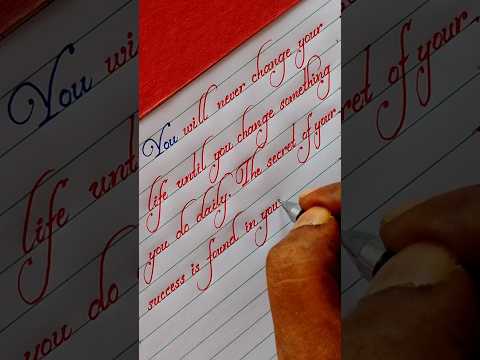 You will never change your
life until you change something
you do daily. The secret of your
success is found in you